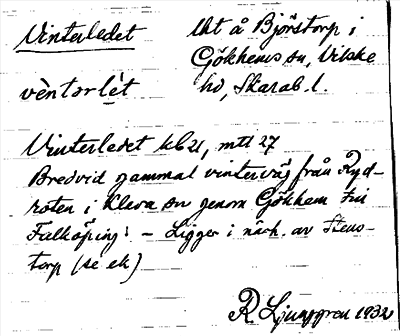 Vinterledet
Ukt å Björstorp i
Gökhems sn, Vilske
hd, Skarab. l.
vènterlét
Vinterledet kb 21, mtt 27
Bredvid gammal vinterväg från Ryd-
roten i Kleva sn genom Gökhem till
Falköping! - Ligger i närh. av Stens-
torp (se ek)
R. Ljunggren 1932